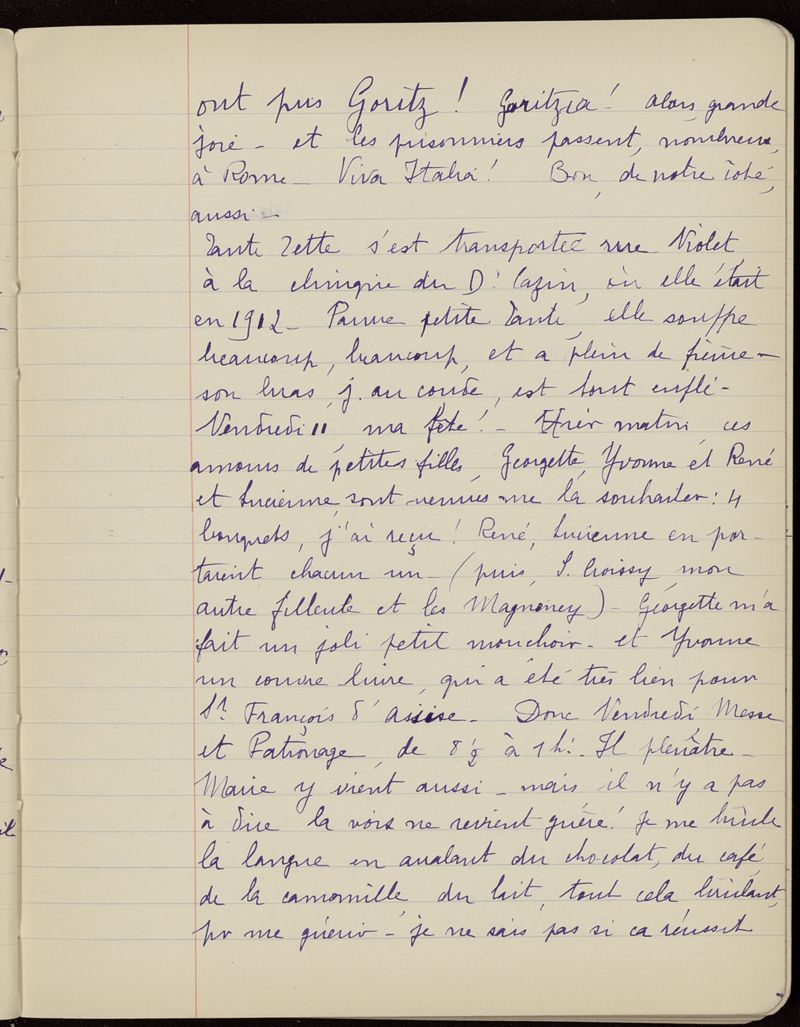 ont pris Goritz ! Goritzia ! alors grande
joie – et les prisonniers passent, nombreux,
à Rome – Viva Italia ! Bon, de notre côté,
aussi –
Tante Zette s'est transportée rue Violet,
à la clinique du Dr Cazin, où elle était
en 1912 – Pauvre petite Tante, elle souffre
beaucoup, beaucoup, et a plein de fièvre –
son bras, j. au coude, est tout enflé –
Vendredi 11, ma fête ! – Hier matin, ces
amours de petites filles, Georgette, Yvonne et René
et Lucienne, sont venues me la souhaiter : 4
bouquets, j'ai reçu ! René, Lucienne en por-
taient chacun un – (puis, S. Croissy, mon
autre filleule et les Magnoney) – Georgette m'a
fait un joli petit mouchoir – et Yvonne
un couvre livre, qui a été très bien pour
St François d'Assise – Donc Vendredi Messe
et Patronage, de 8 ½ à 1h. – Il pleuâtre –
Marie y vient aussi – mais il n'y a pas
à dire la voix ne revient guère ! Je me brûle
la langue en avalant du chocolat, du café,
de la camomille, du lait, tout cela brûlant,
pr me guérir – je ne sais pas si ca réussit